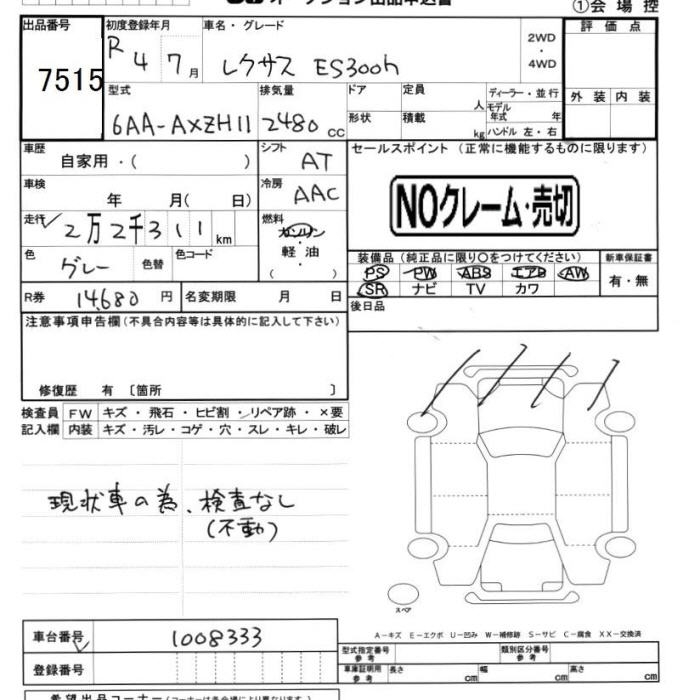 オークション出品申込書
①会場控
出品番号
7515
初度登録年月
R4 7月
車名・グレード
レクサス ES300h
2WD
・
4WD
評価点
外装 内装
型式
6AA-AXZH11
排気量
2480 cc
ドア
形状
定員
人
積載
kg
ディーラー・並行
モデル年式 年
ハンドル 左・右
車歴
自家用・( )
シフト
AT
車検
年 月( 日)
冷房
AAC
走行
2万2千311km
燃料
ガソリン
・
軽油
( )
色
グレー
色替
色コード
R券
14,680 円
名変期限 月 日
セールスポイント (正常に機能するものに限ります)
NOクレーム・売切
装備品(純正品に限り○をつけてください)
新車保証書
PS PW ABS エアB AW
SR ナビ TV カワ
有・無
後日品
注意事項申告欄(不具合内容等は具体的に記入して下さい)
修復歴 有 〔箇所 〕
検査員
記入欄
FW キズ・飛石・ヒビ割・リペア跡・×要
内装 キズ・汚レ・コゲ・穴・スレ・キレ・破レ
現状車の為、検査なし
(不動)
スペア
A-キズ E-エクボ U-凹み W-補修跡 S-サビ C-腐食 XX-交換済
車台番号
1008333
登録番号
型式指定番号
参考
類別区分番号
参考
車庫証明用
参考
長さ cm
幅 cm
高さ cm
希望出品コーナー(コーナーは各会場により異なります。)